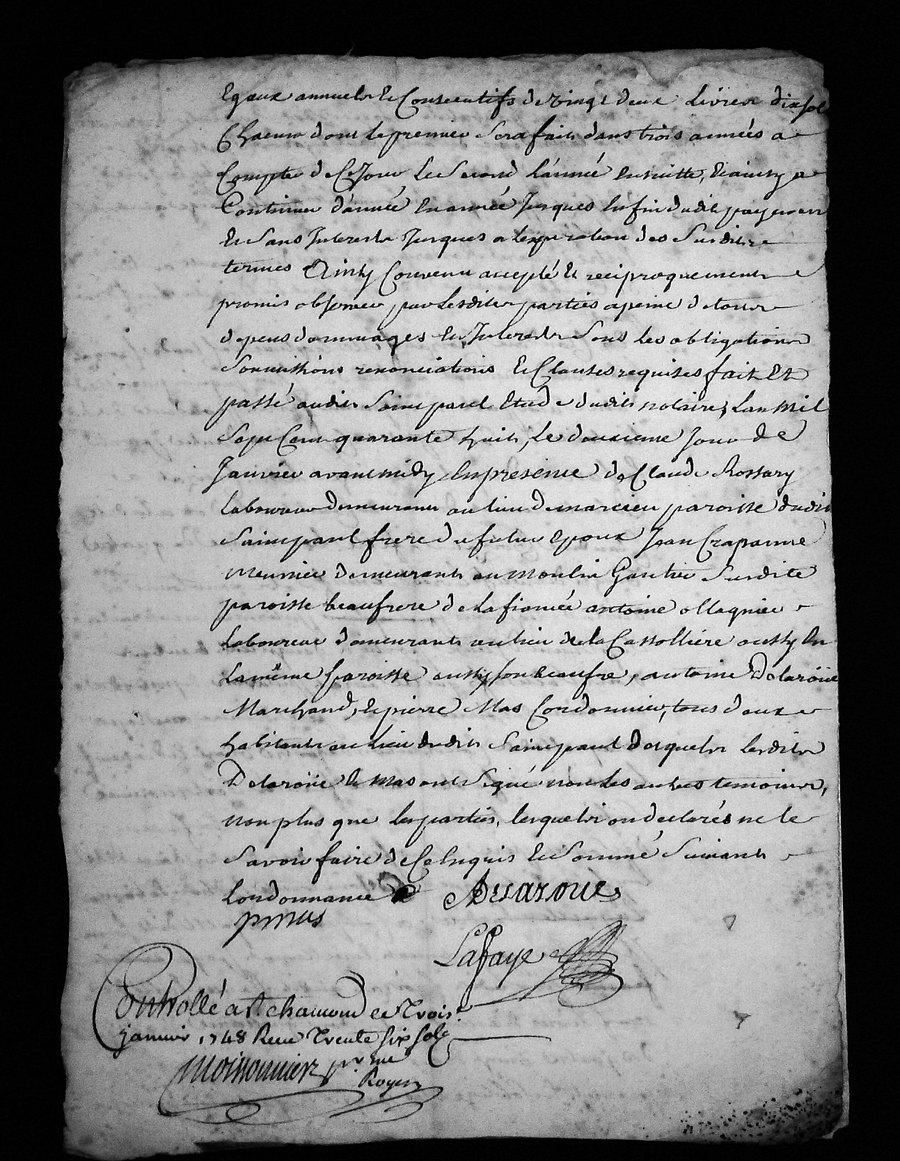 Egaux annuels Et Consecutifs de vingt deux Livres dix sols
Chacun dont le premier sera fait dans trois années a
Compter de Ce Jour Le Second L'année Ensuitte, Et ainsy a
Continuer d'année En année Jusques En fin dudit payement
Et Sans Interests Jusques a lexpiration des Susdits
termes Ainsy Convenu accepté Et reciproquement
promis observer par Lesdites parties a peine de tous
depens dommages Et Interests Sous les obligations
Soumissions renonciations Et Clauses requises fait Et
passé audit Saint paul Etude dudit notaire, Lan Mil
Sept Cent quarante huit, Le deuxieme Jour de
Janvier avant midy En presence de Claude Rossary
Laboureur demeurant au lieu de marcieu paroisse dudit
Saint paul frere du futur Epoux Jean Crapanne
Meunier demeurant au Moulin Gautier Susdite
paroisse beaufrere de La fiancée antoine ollagnier
Laboureur demeurant au lieu de la Cassollière aussy En
La même paroisse aussy son beaufre, antoine Delaroüe
Marchand, Et pierre Mas Cordonnier, tous deux
habitants au Lieu dudit Saint paul desquels Lesdits
Delaroüe Et Mas ont Signé non Les autres temoins,
non plus que Les parties, lesquels ont declarés ne le
Savoir faire de Ce Enquis Et Sommé Suivant
Lordonnance
pmas
Delaroue
Lafaye
Controllé a St. chamond Le Trois
janvier 1748 Recu Trente six sols
moissonnier pr mr
Royer